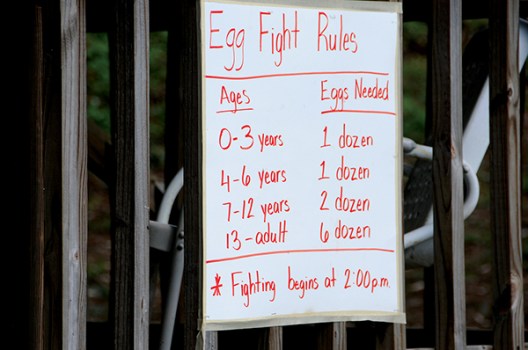 Egg Fight Rules
Ages Eggs Needed
0-3 years 1 dozen
4-6 years 1 dozen
7-12 years 2 dozen
13-adult 6 dozen
* Fighting begins at 2:00p.m.